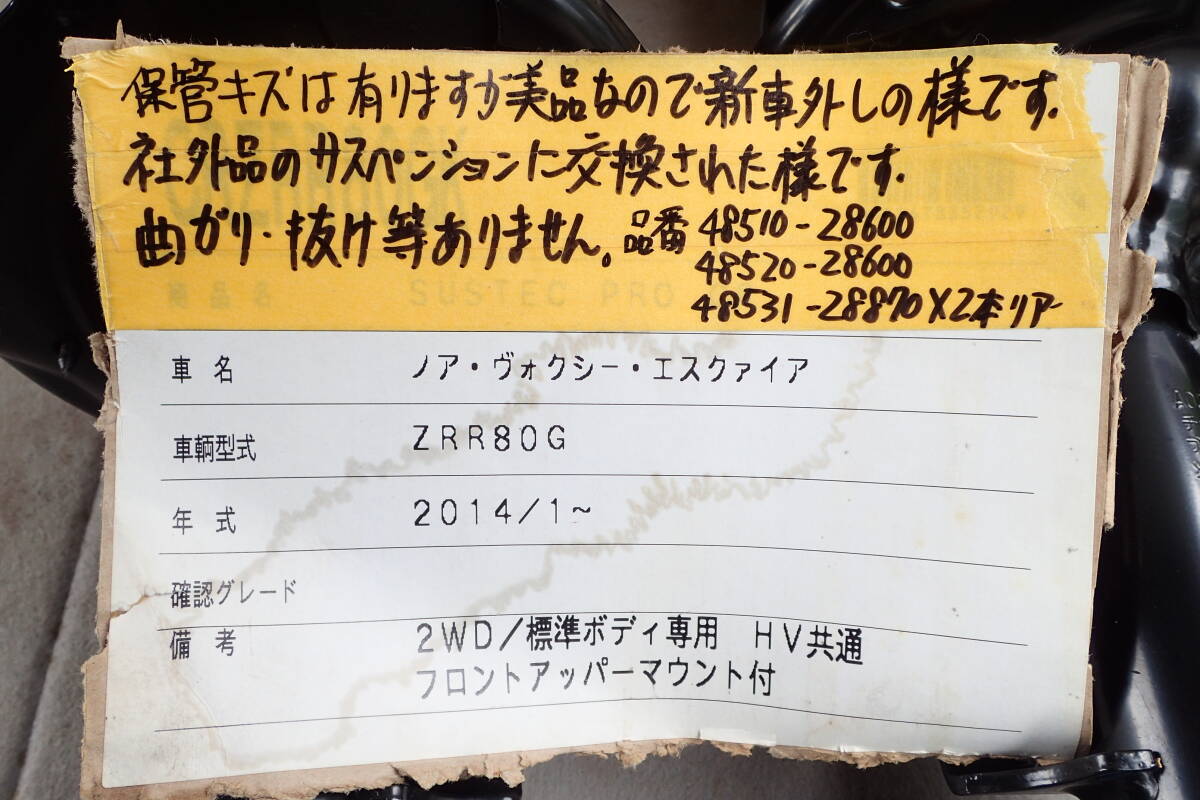 保管キズは有りますが美品なので新車外しの様です.
社外品のサスペンションに交換された様です.
曲がり・抜け等ありません。品番 48510-28600
48520-28600
48531-28870×2本リアー
商品名 SUSTEC PRO
車名 ノア・ヴォクシー・エスクァイア
車輌型式 ZRR80G
年式 2014/1~
確認グレード
備考 2WD/標準ボディ専用 HV共通
フロントアッパーマウント付